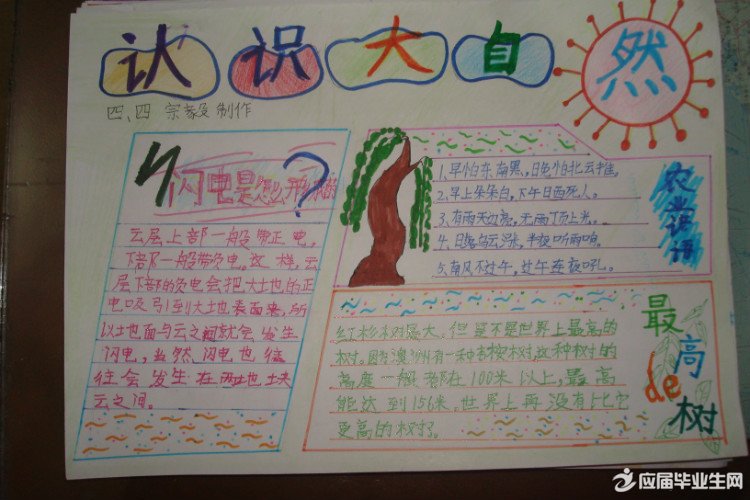 认识大自然
四、四 宗毅制作
闪电是怎么形
云层上部一般带正电,
下部一般带负电。这样,云
层下部的负电会把大地的正
电吸引到大地表面来,所
以地面与云之间就会发生
闪电,当然,闪电也往
往会发生在两块
云之间。
农业谚语
1.早怕东南黑,晚怕北云推。
2.早上朵朵白,下午日西死人。
3.有雨天边亮,无雨顶上光。
4.日落乌云涨,半夜听雨响。
5.南风不过午,过午连夜吼。
最高de树
红杉树最大。但是不是世界上最高的
树。因为澳洲有一种杏桉树,这种树的
高度一般都在100米以上,最高
能达到156米。世界上再没有比它
更高的树了。
应届毕业生网